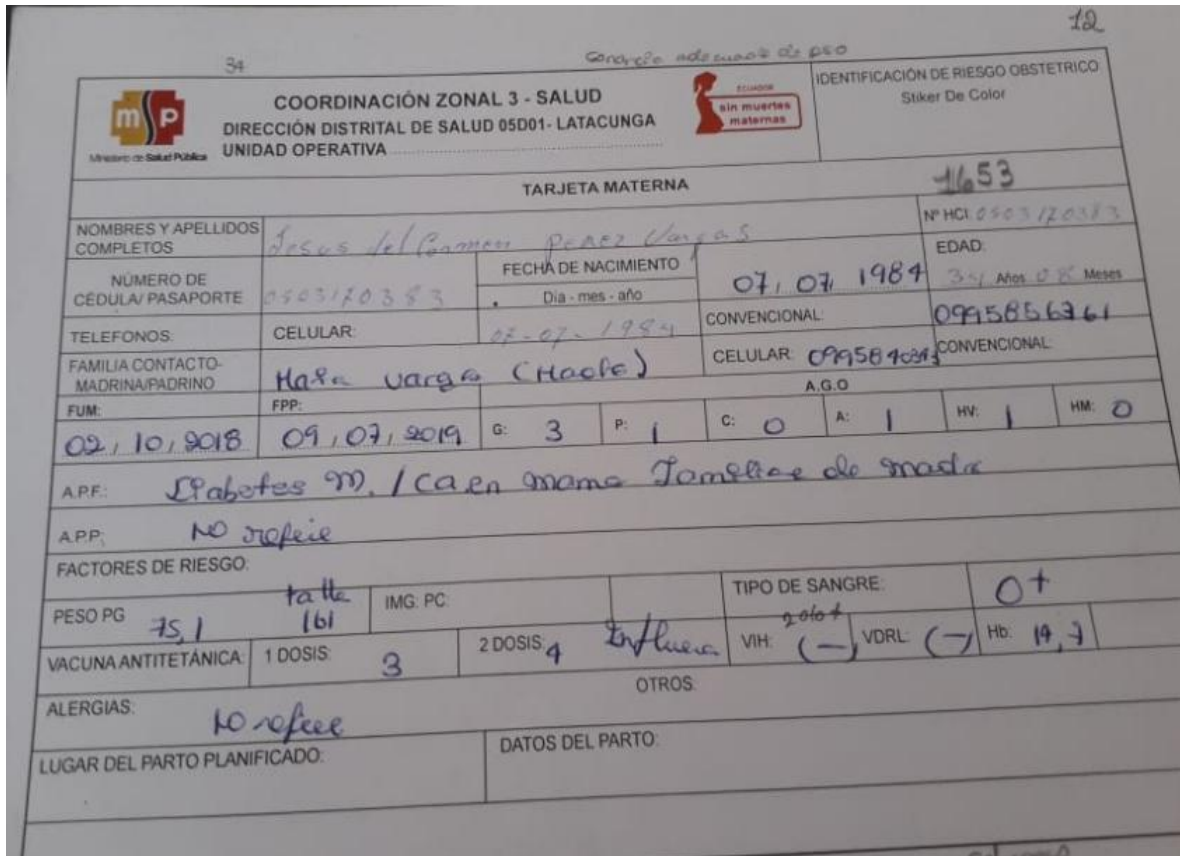 12
34
adecuado de peso
COORDINACIÓN ZONAL 3 - SALUD
DIRECCIÓN DISTRITAL DE SALUD 05D01- LATACUNGA
UNIDAD OPERATIVA
msp
Ministerio de Salud Pública
ECUADOR
sin muertes
maternas
IDENTIFICACIÓN DE RIESGO OBSTETRICO
Stiker De Color
TARJETA MATERNA
1653
NOMBRES Y APELLIDOS COMPLETOS
Jesus del Carmen Perez Vargas
Nº HCI: 0503170383
NÚMERO DE CÉDULA/ PASAPORTE
0503170383
FECHA DE NACIMIENTO
Dia - mes - año
07, 07, 1984
EDAD:
34 Años 08 Meses
TELEFONOS:
CELULAR:
07-07-1984
CONVENCIONAL:
0995856761
FAMILIA CONTACTO- MADRINA/PADRINO
Vargas
CELULAR:
CONVENCIONAL:
FUM:
02, 10, 2018
FPP:
09, 07, 2019
A.G.O
G: 3
P: 1
C: 0
A: 1
HV: 1
HM: 0
A.P.F.: Diabetes M. / Ca en mama de madre
A.P.P: NO refiere
FACTORES DE RIESGO:
PESO PG 75,1
talla 161
IMG: PC:
TIPO DE SANGRE:
O+
VACUNA ANTITETÁNICA:
1 DOSIS: 3
2 DOSIS: 4
VIH: (-)
VDRL: (-)
Hb:
ALERGIAS:
NO refiere
OTROS:
LUGAR DEL PARTO PLANIFICADO:
DATOS DEL PARTO: